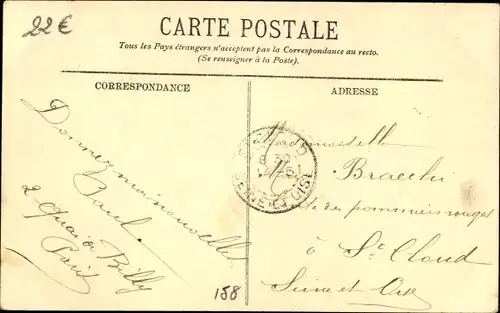 22 €
CARTE POSTALE
Tous les Pays étrangers n'acceptent pas la Correspondance au recto.
(Se renseigner à la Poste).
CORRESPONDANCE
ADRESSE
Donnez moi nouvelles
Paul
2 Quai de Billy
Paris
Mademoiselle
Bracchi
des pommiers rouges
à St Cloud
Seine et Oise
SEINE-ET-OISE
158